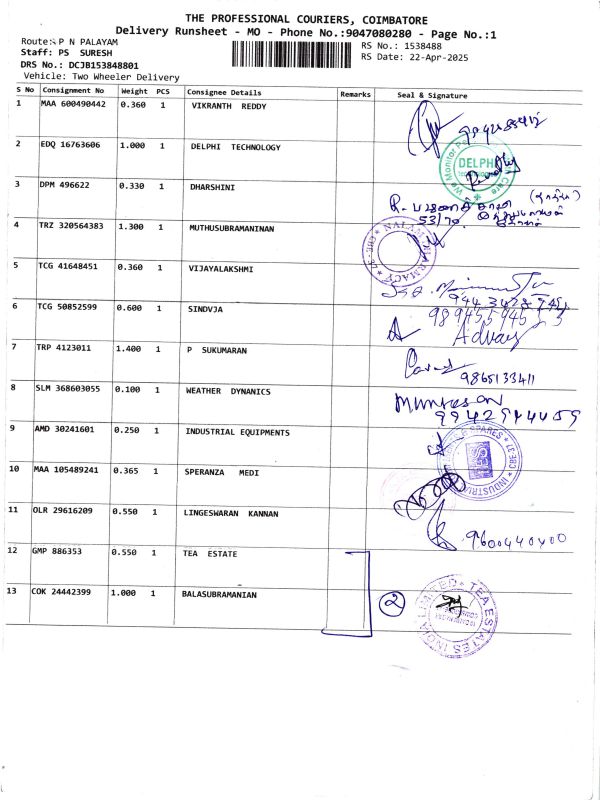 THE PROFESSIONAL COURIERS, COIMBATORE
Delivery Runsheet - MO - Phone No.:9047080280 - Page No.:1
Route: P N PALAYAM
RS No.: 1538488
Staff: PS SURESH
RS Date: 22-Apr-2025
DRS No.: DCJB153848801
Vehicle: Two Wheeler Delivery
S No Consignment No Weight PCS Consignee Details Remarks Seal & Signature
1 MAA 600490442 0.360 1 VIKRANTH REDDY
2 EDQ 16763606 1.000 1 DELPHI TECHNOLOGY
DELPHI
3 DPM 496622 0.330 1 DHARSHINI
53/70
4 TRZ 320564383 1.300 1 MUTHUSUBRAMANINAN
NALAM PHARMACY
CBE-37
5 TCG 41648451 0.360 1 VIJAYALAKSHMI
6 TCG 50852599 0.600 1 SINDVJA
Advay
7 TRP 4123011 1.400 1 P SUKUMARAN
9865133411
8 SLM 368603055 0.100 1 WEATHER DYNANICS
9942944059
9 AMD 30241601 0.250 1 INDUSTRIAL EQUIPMENTS
INDUSTRIAL SPARES CBE-37
10 MAA 105489241 0.365 1 SPERANZA MEDI
11 OLR 29616209 0.550 1 LINGESWARAN KANNAN
9600440400
12 GMP 886353 0.550 1 TEA ESTATE
13 COK 24442399 1.000 1 BALASUBRAMANIAN
2
TEA ESTATES INDIA LIMITED